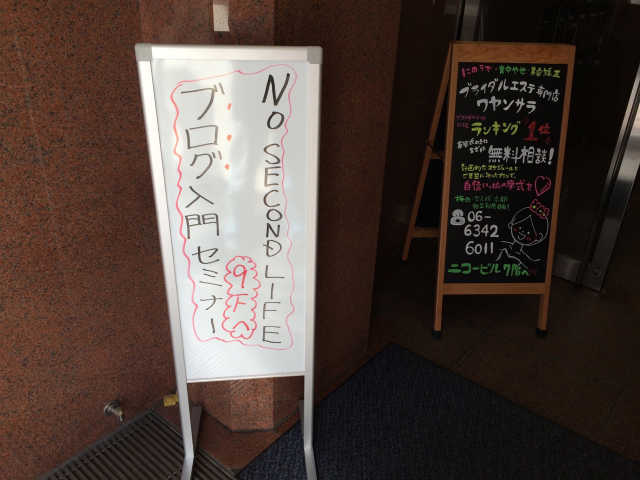 NO SECOND LIFE
ブログ入門セミナー
9Fへ
二の腕・背中やせ・骨盤矯正
ブライダルエステ専門店
ワヤンサラ
ランキング 1位
無料相談!
自信いっぱいの挙式を
06-
6342
6011
ニコービル7階へ